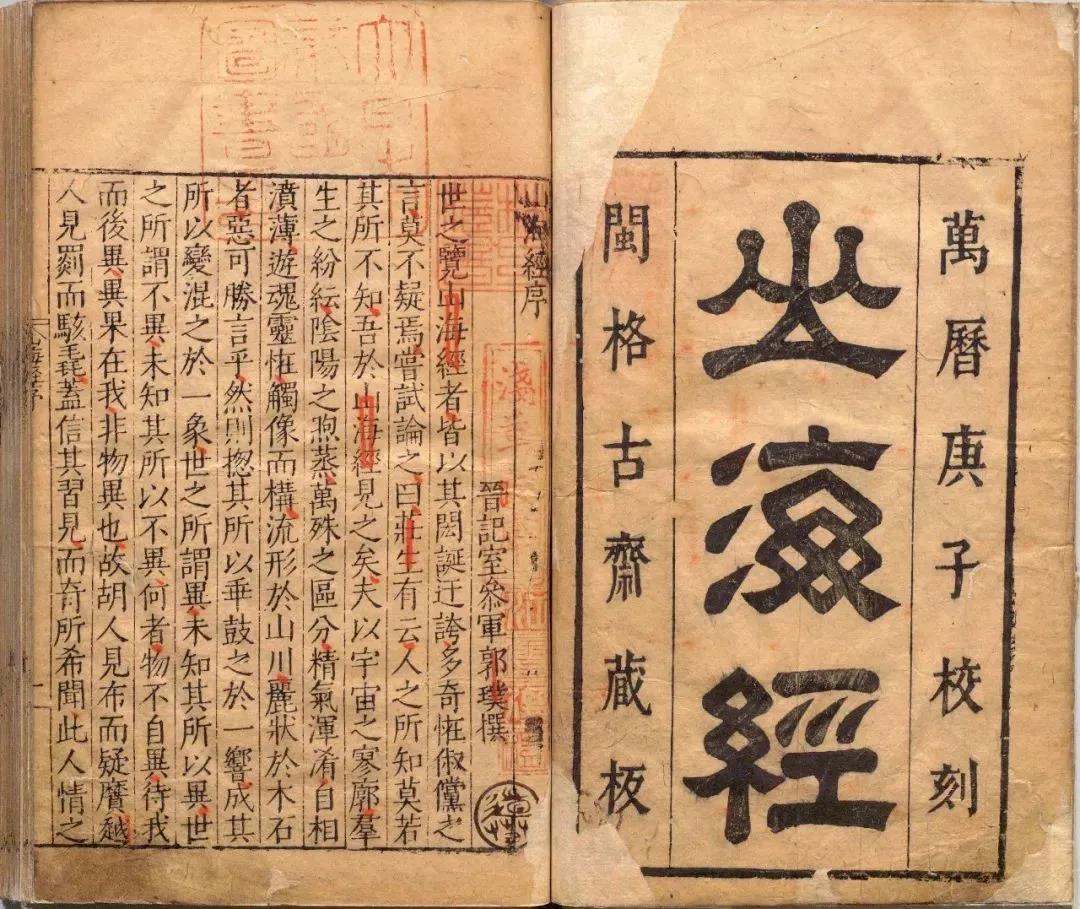 萬曆庚子校刻
山海經
閩格古齋藏板
山海經序
晉記室叅軍郭璞撰
世之覽山海經者皆以其閎誕迂誇多奇恠俶儻之
言莫不疑焉嘗試論之曰莊生有云人之所知莫若
其所不知吾於山海經見之矣夫以宇宙之寥廓羣
生之紛紜陰陽之煦蒸萬殊之區分精氣渾淆自相
濆薄遊魂靈恠觸像而構流形於山川麗狀於木石
者惡可勝言乎然則揔其所以垂鼓之於一響成其
所以變混之於一象世之所謂異未知其所以異世
之所謂不異未知其所以不異何者物不自異待我
而後異異果在我非物異也故胡人見布而疑黂越
人見罽而駭毳蓋信其習見而奇所希聞此人情之